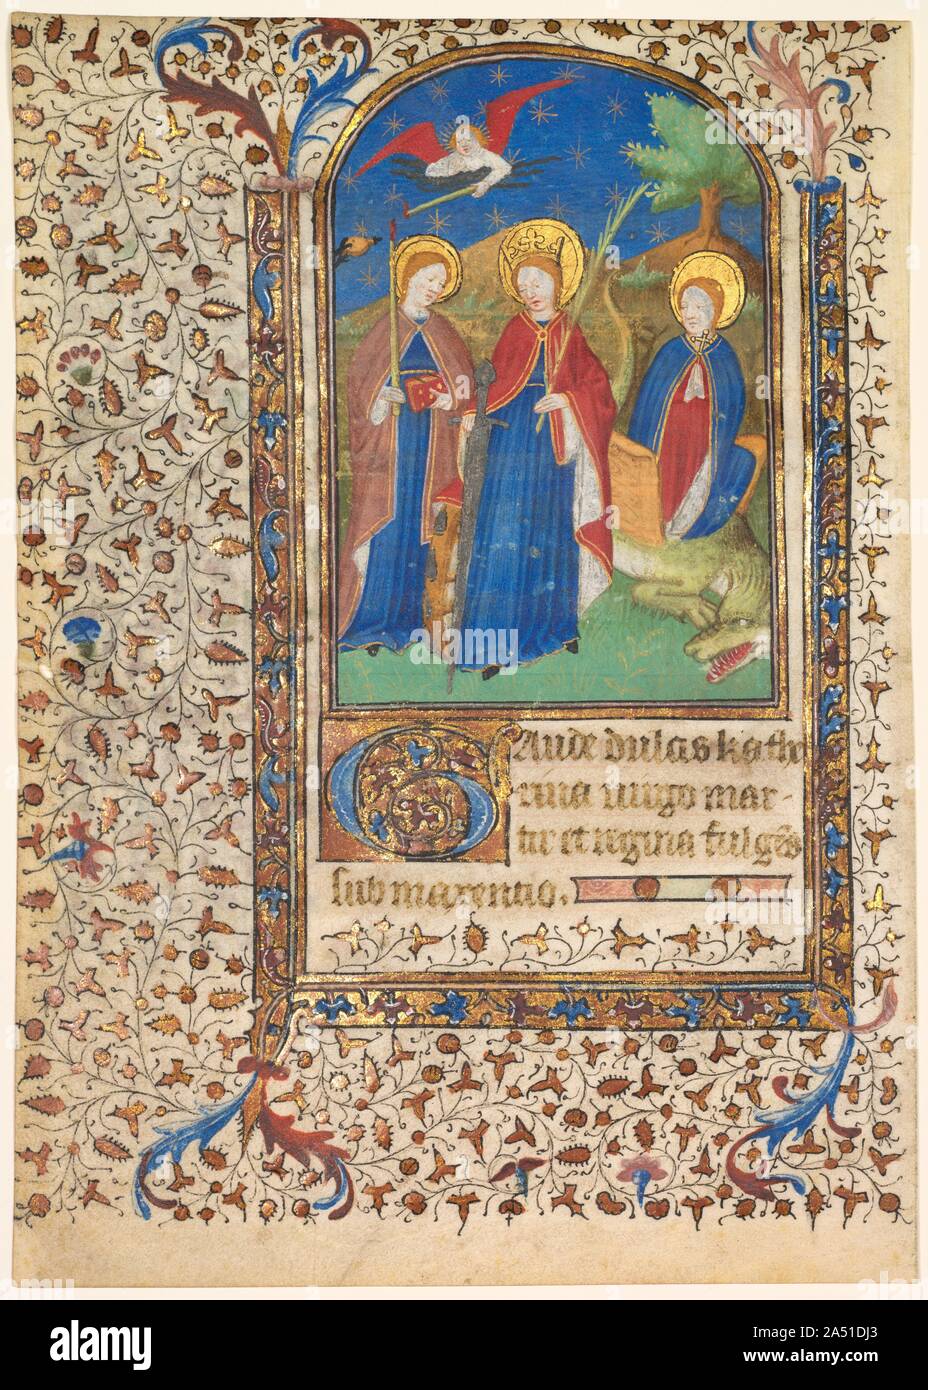 Gaude dulcis kathe
rina uirgo mar-
tir et regina fulgēs
sub maxentio.
alamy
Image ID: 2A51DJ3
www.alamy.com